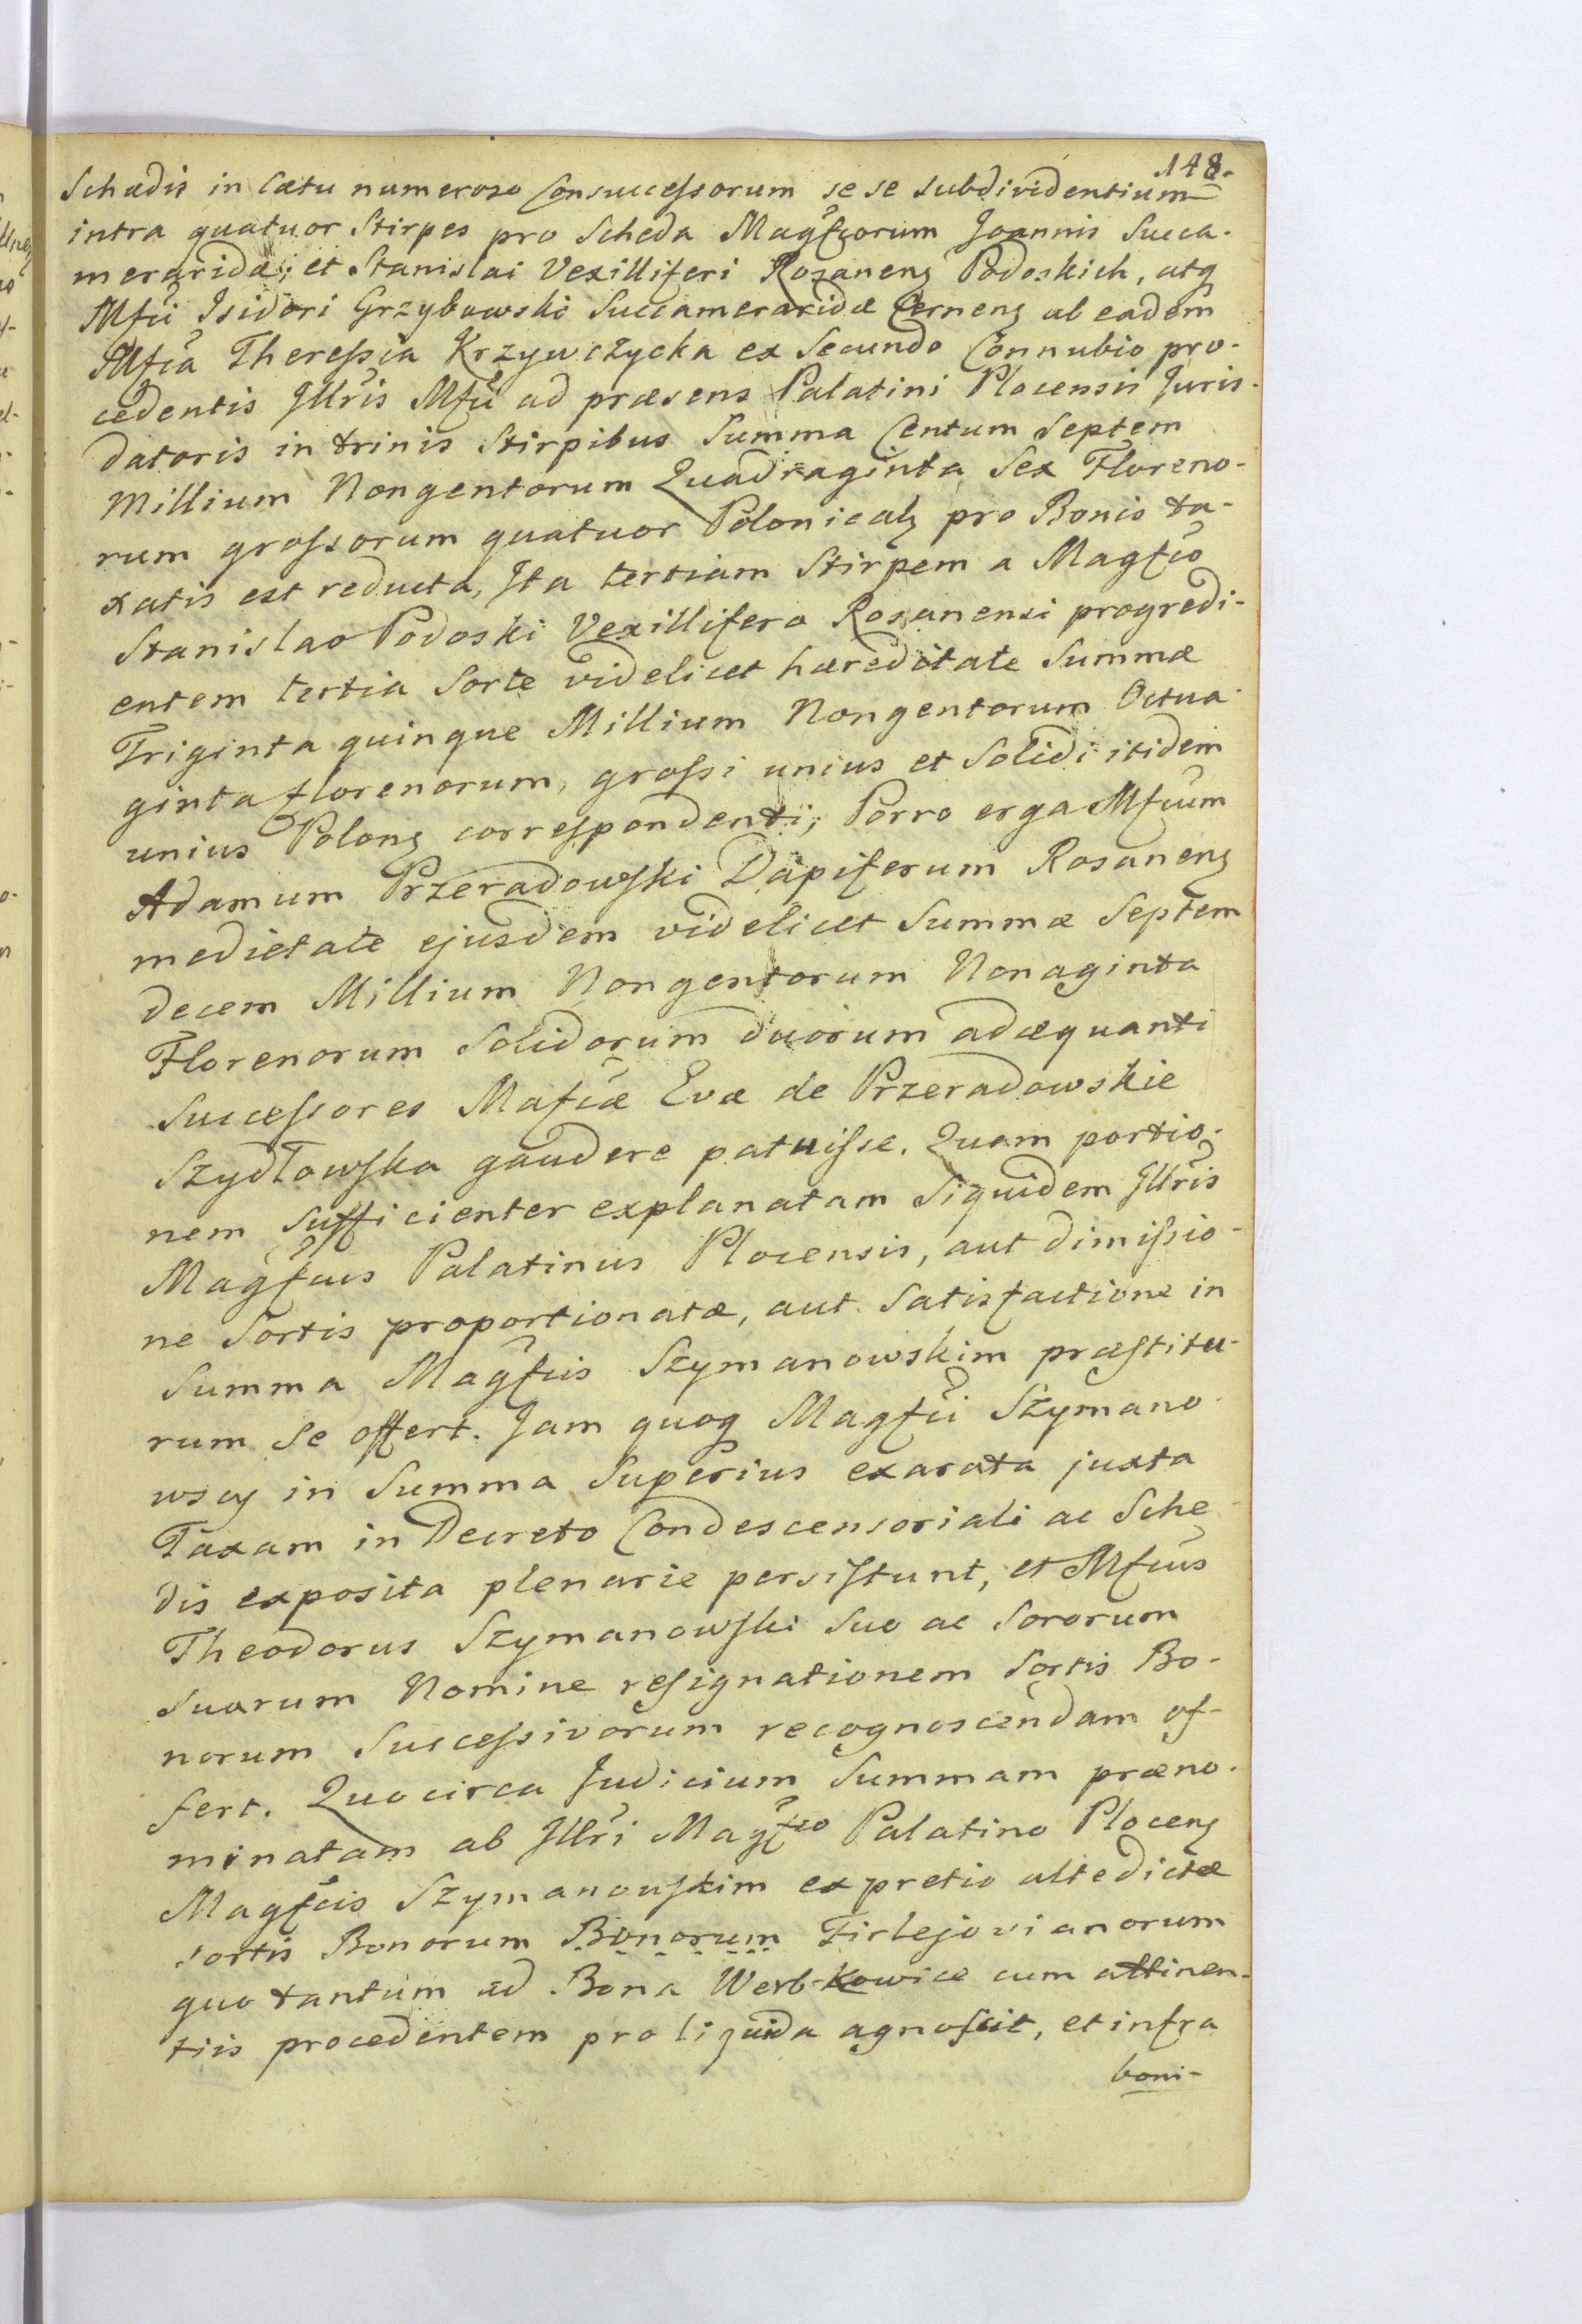 148.
Schedis in Cætu numeroso Consuccessorum se se subdividentium
intra quatuor Stirpes pro Scheda Magfcorum Joannis Succa-
merarida, et Stanislai Vexilliferi Rozanens Podoskich, atq
Mfci Isidori Grzybowski Succameraridæ Cernens ab eadem
Mfca Theressia Krzywczycka ex Secundo Connubio pro-
cedentis Jllris Mfci ad præsens Palatini Plocensis Juris-
datoris in trinis Stirpibus Summa Centum Septem
Millium Nongentorum Quadraginta Sex Floreno-
rum grossorum quatuor Polonicals pro Bonis ta-
xatis est reducta, Ita tertiam Stirpem a Magfco
Stanislao Podoski Vexillifero Rozanensi progredi-
entem tertia Sorte videlicet hæreditate Summæ
Triginta quinque Millium Nongentorum Octua-
ginta florenorum, grossi unius et Solidi itidem
unius Polons correspondenti; Porro erga Mfcum
Adamum Przeradowski Dapiferum Rosanens
medietate ejusdem videlicet Summæ Septem
decem Millium Nongentorum Nonaginta
Florenorum Solidorum duorum adæquanti
Successores Mafcæ Evæ de Przeradowskie
Szydłowska gaudere patuisse. Quam portio-
nem sufficienter explanatam Siquidem Jllris
Magfcus Palatinus Plocensis, aut dimissio-
ne Sortis proportionatæ, aut Satisfactione in
Summa Magfcis Szymanowskim præstitu-
rum Se offert. Jam quoq Magfci Szymano-
wscy in Summa Superius exarata juxta
Taxam in Decreto Condescensoriali ac Sche-
dis exposita plenarie persistunt, et Mfcus
Theodorus Szymanowski Suo ac Sororum
Suarum Nomine resignationem Sortis Bo-
norum Successivorum recognoscendam of-
fert. Quocirca Judicium Summam præno-
minatam ab Jllri Magfco Palatino Plocens
Magfcis Szymanowskim ex pretio altedictæ
sortis Bonorum Bonorum Firlejovianorum
quo tantum ad Bona Werbkowice cum attinen-
tiis procedentem pro liquida agnoscit, et infra
boni-